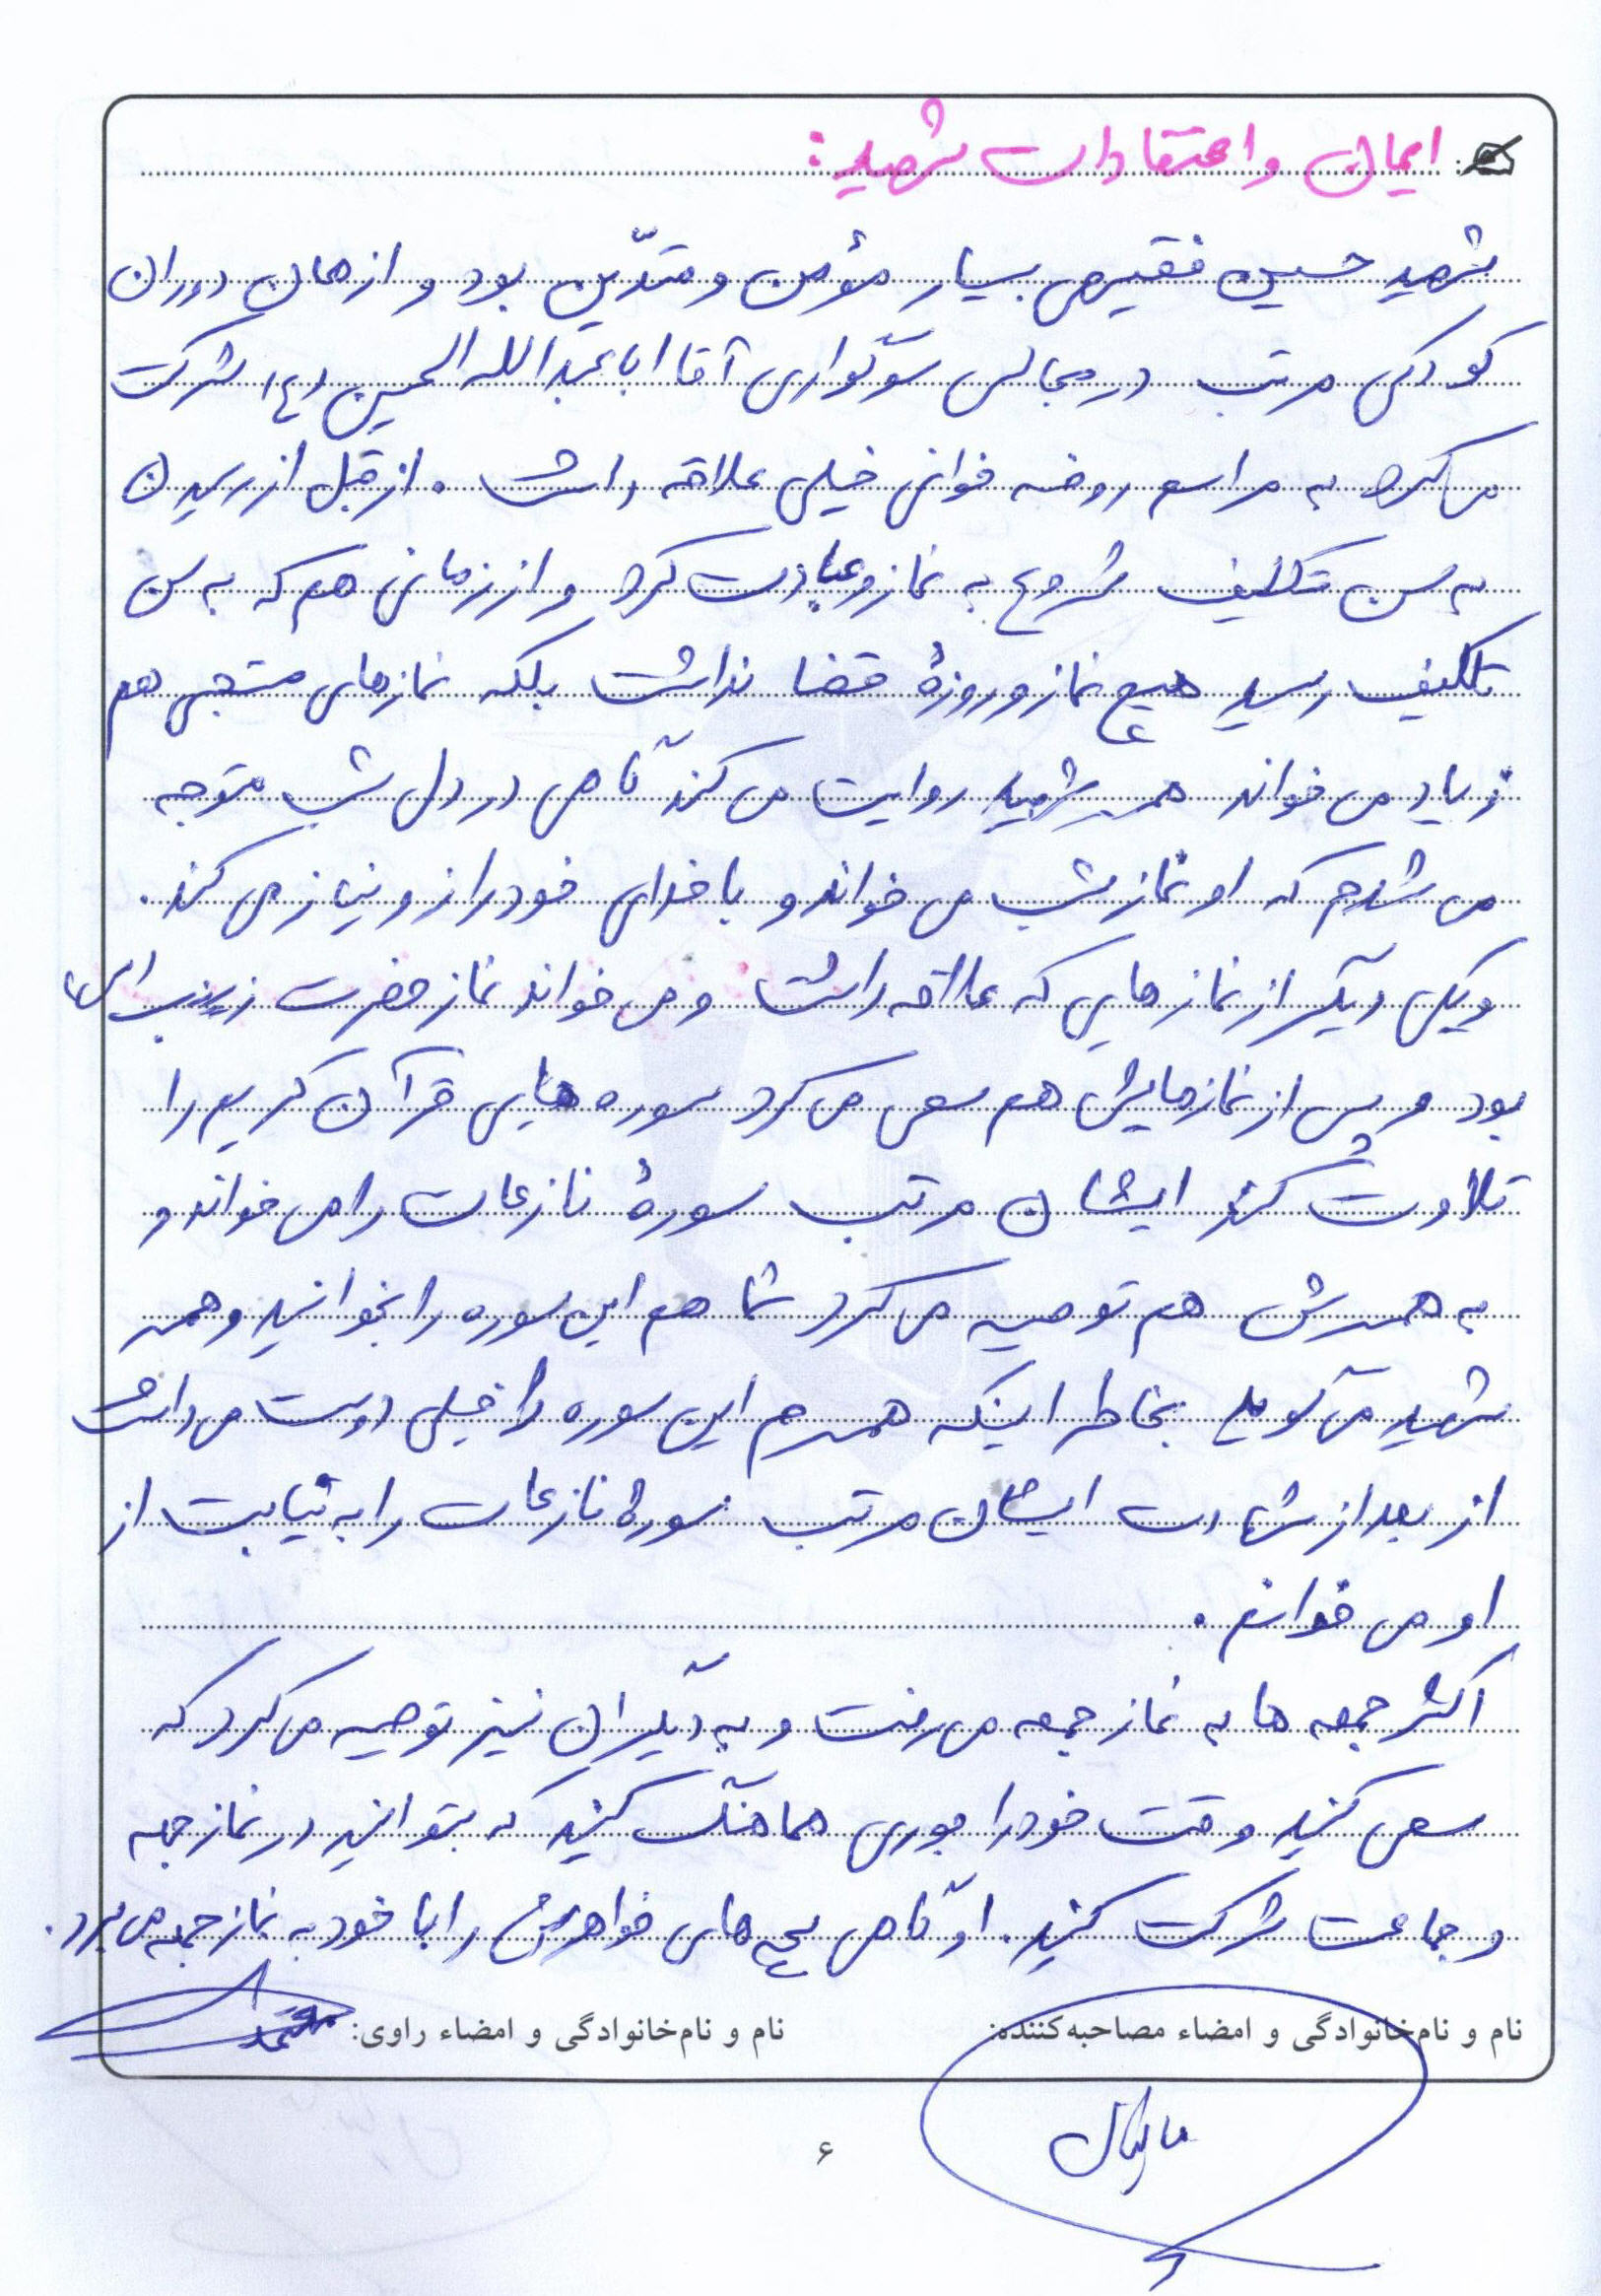 ایمان و اعتقادات شهید:
شهید حسین فقیهی بسیار مؤمن و متدّین بود و از همان دوران
کودکی مرتب در مجالس سوگواری آقا ابا عبدالله الحسین (ع) شرکت
می کرد به مراسم روضه خوانی خیلی علاقه داشت . از قبل از رسیدن
به سن تکلیف شروع به نماز و عبادت کرد و از زمانی هم که به سن
تکلیف رسید هیچ نماز و روزهٔ قضا نداشت بلکه نمازهای مستحبی هم
زیاد می خواند همسر شهید روایت می کند گاهی در دل شب متوجه
می شدم که او نماز شب می خواند و با خدای خود راز و نیاز می کند.
و یکی دیگر از نمازهایی که علاقه داشت و می خواند نماز حضرت زینب (س)
بود و پس از نمازهایش هم سعی می کرد سوره های قرآن کریم را
تلاوت کند ایشان مرتب سورهٔ نازعات را می خواند و
به همسرش هم توصیه می کرد شما هم این سوره را بخوانید و همسر
شهید می گوید بخاطر اینکه همسرم این سوره را خیلی دوست می داشت
از بعد از شهادت ایشان مرتب سورهٔ نازعات را به نیابت از
او می خوانم .
اکثر جمعه ها به نماز جمعه می رفت و به دیگران نیز توصیه می کرد که
سعی کنید وقت خود را جوری هماهنگ کنید که بتوانید در نماز جمعه
و جماعت شرکت کنید. او گاهی بچه های خواهرش را با خود به نماز جمعه می برد.
نام و نام‌خانوادگی و امضاء مصاحبه‌کننده: نام و نام‌خانوادگی و امضاء راوی:
۶